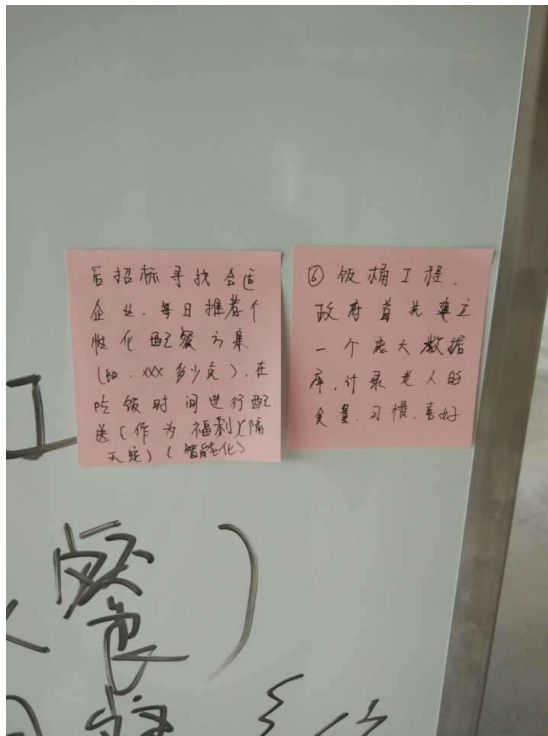 后招标寻找合适
企业，每日推荐个
性化配餐方案
(如.xxx多少克).在
吃饭时间进行配
送(作为福利)(隔
天定)(智能化)
⑥饭桶工程.
政府首先建立
一个庞大数据
库,计录老人的
食量.习惯.喜好
餐)